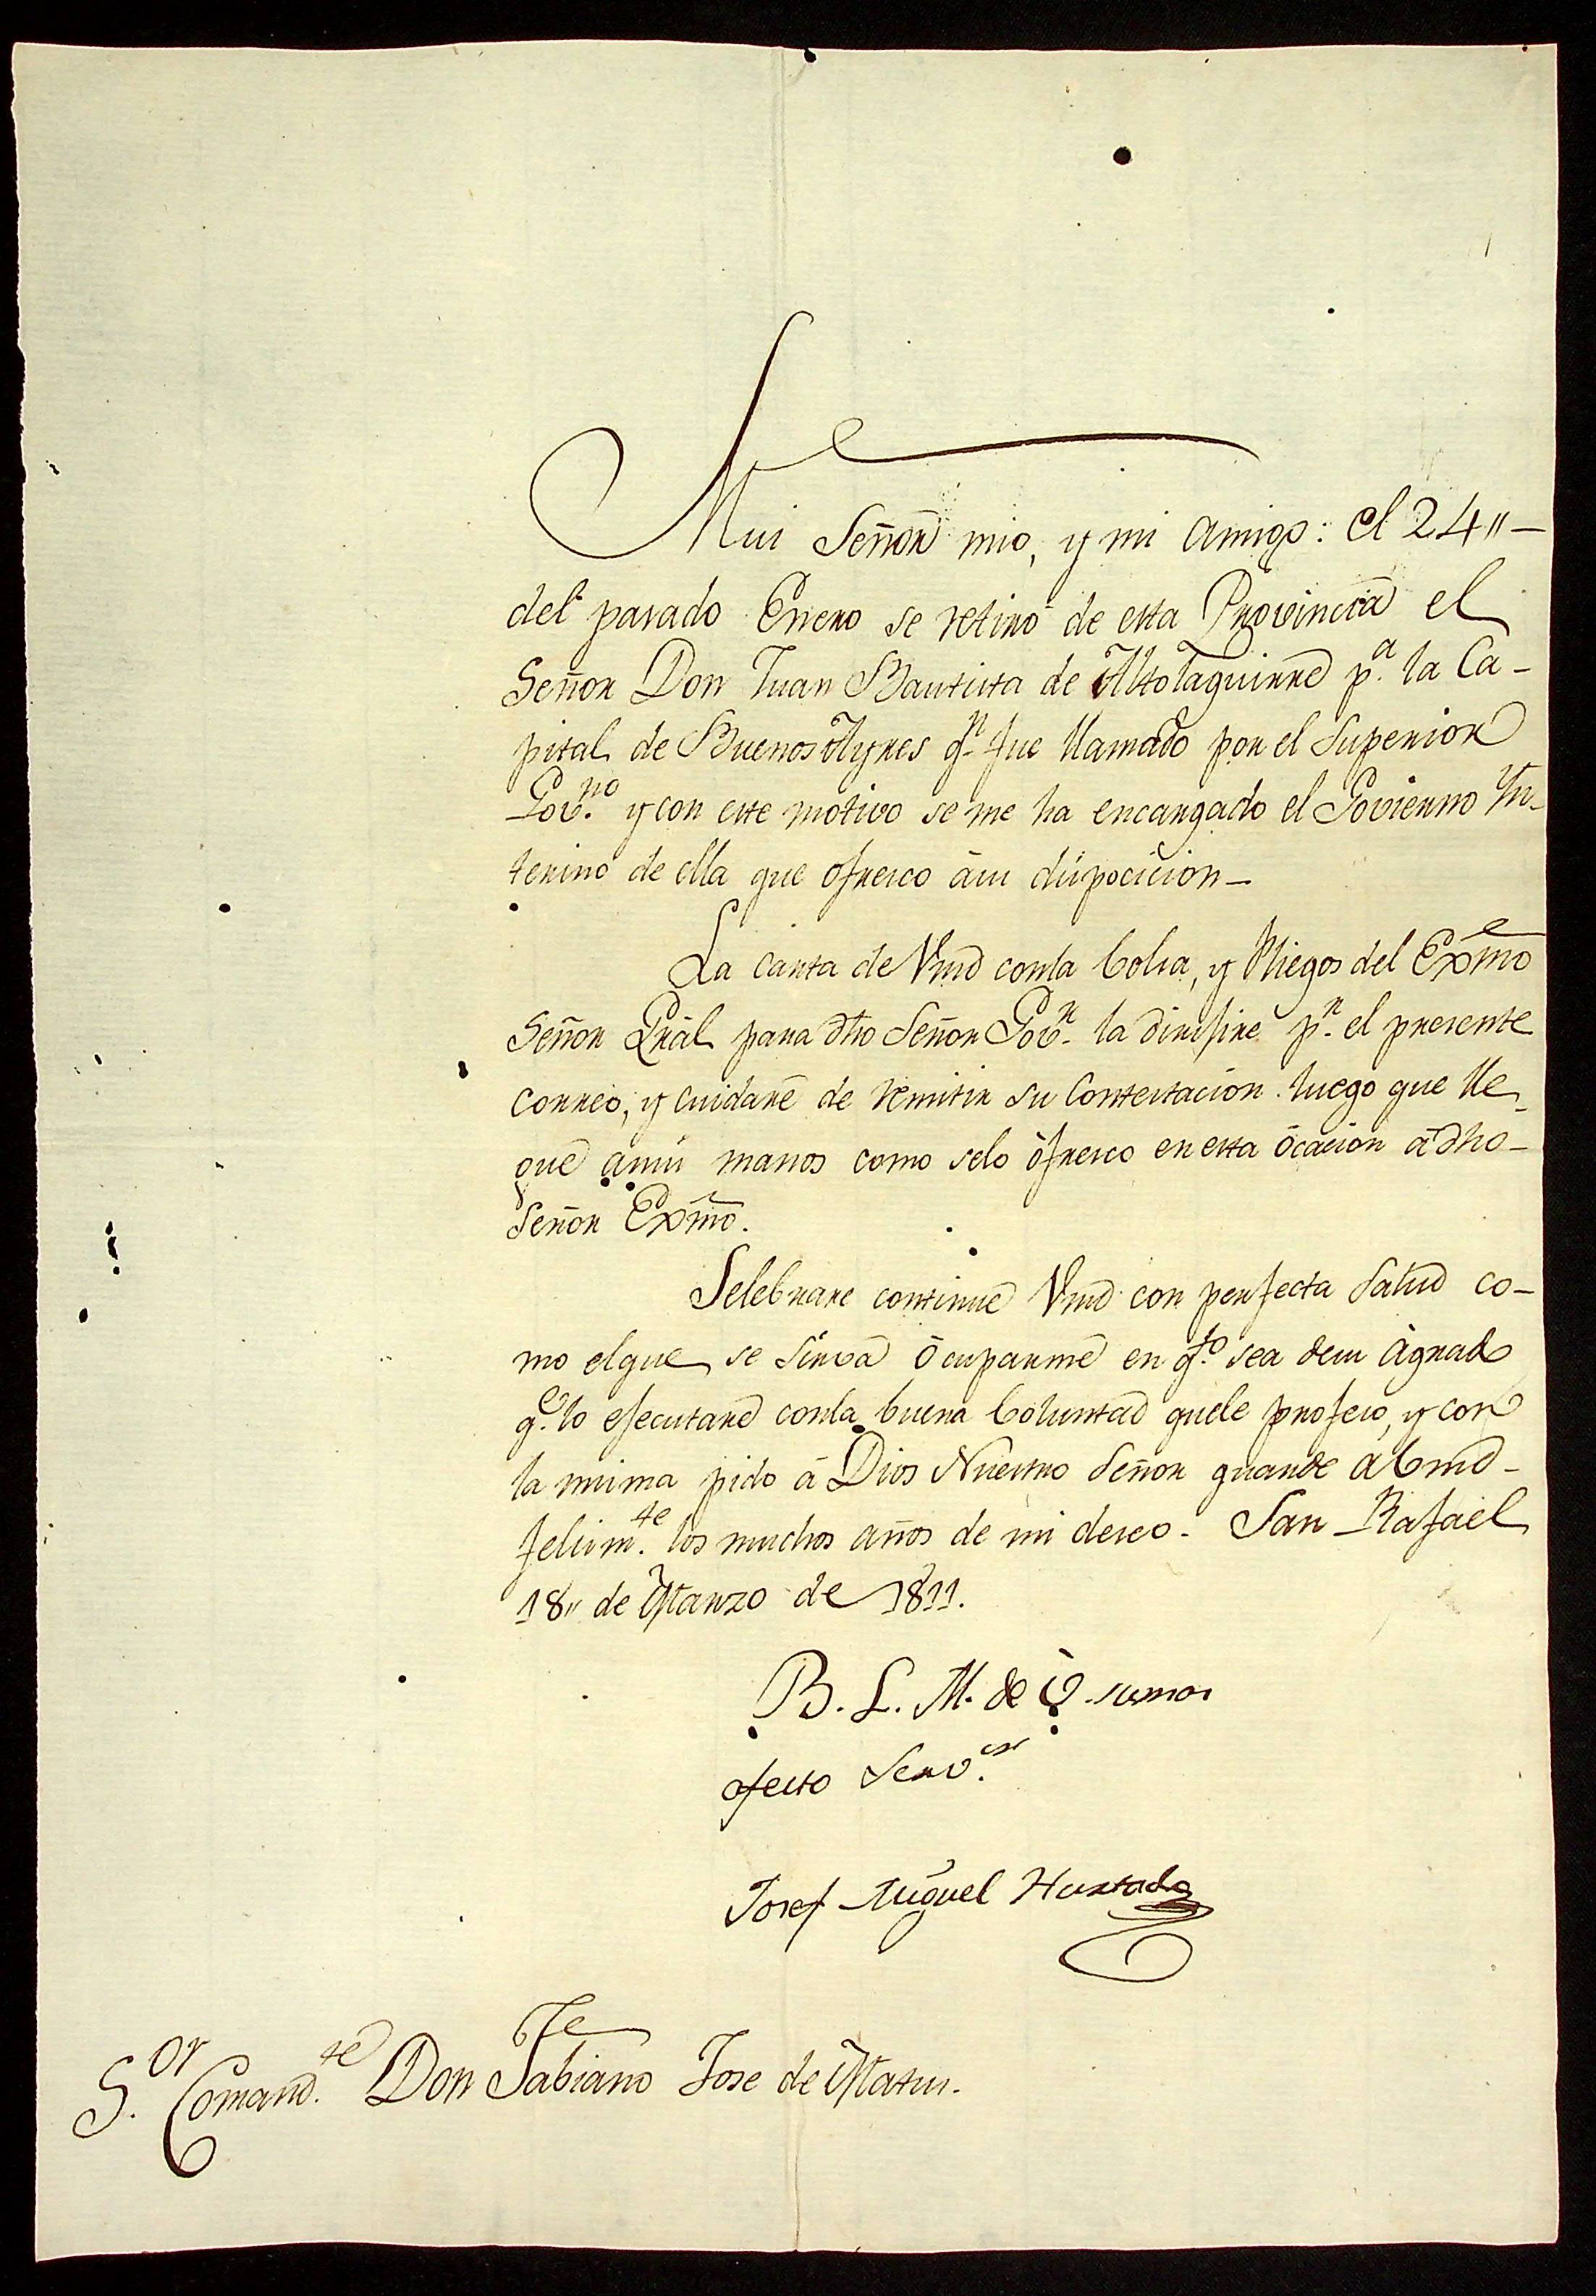 Mui Señor mio, y mi amigo: el 24,,—
del pasado Enero se retiro de esta Provincia el
Señor Don Juan Bautista de Altolaguirre p.ª la Ca-
pital de Buenos Ayres q.n fue llamado por el Superior
Gov.no y con este motivo se me ha encargado el Govierno In-
terino de ella que ofresco àsu dispocicion—
La carta de Vmd conla bolsa, y Pliegos del Exmõ
Señor Grãl para dho Señor Gov.r la dirijire p.r el presente
correo, y cuidare de remitir su Contestacion luego que lle-
gue amis manos como selo òfresco en esta òcacion à dho—
Señor Exmõ.
Selebrare continue Vmd con perfecta Salud co-
mo elque se sirva òcuparme en q.to sea desu àgrado
q.e lo ejecutare conla buena boluntad quele profeso, y con
la misma pido à Dios Nuestro Señor guarde abmd—
felism.te los muchos años de mi deseo- San Rafael
18,, de Marzo de 1811.
B. L. M. de V. su mas
afecto Serv.or
Josef Miguel Hurtado
S.or Comand.te Don Fabiano Jose de Matus.